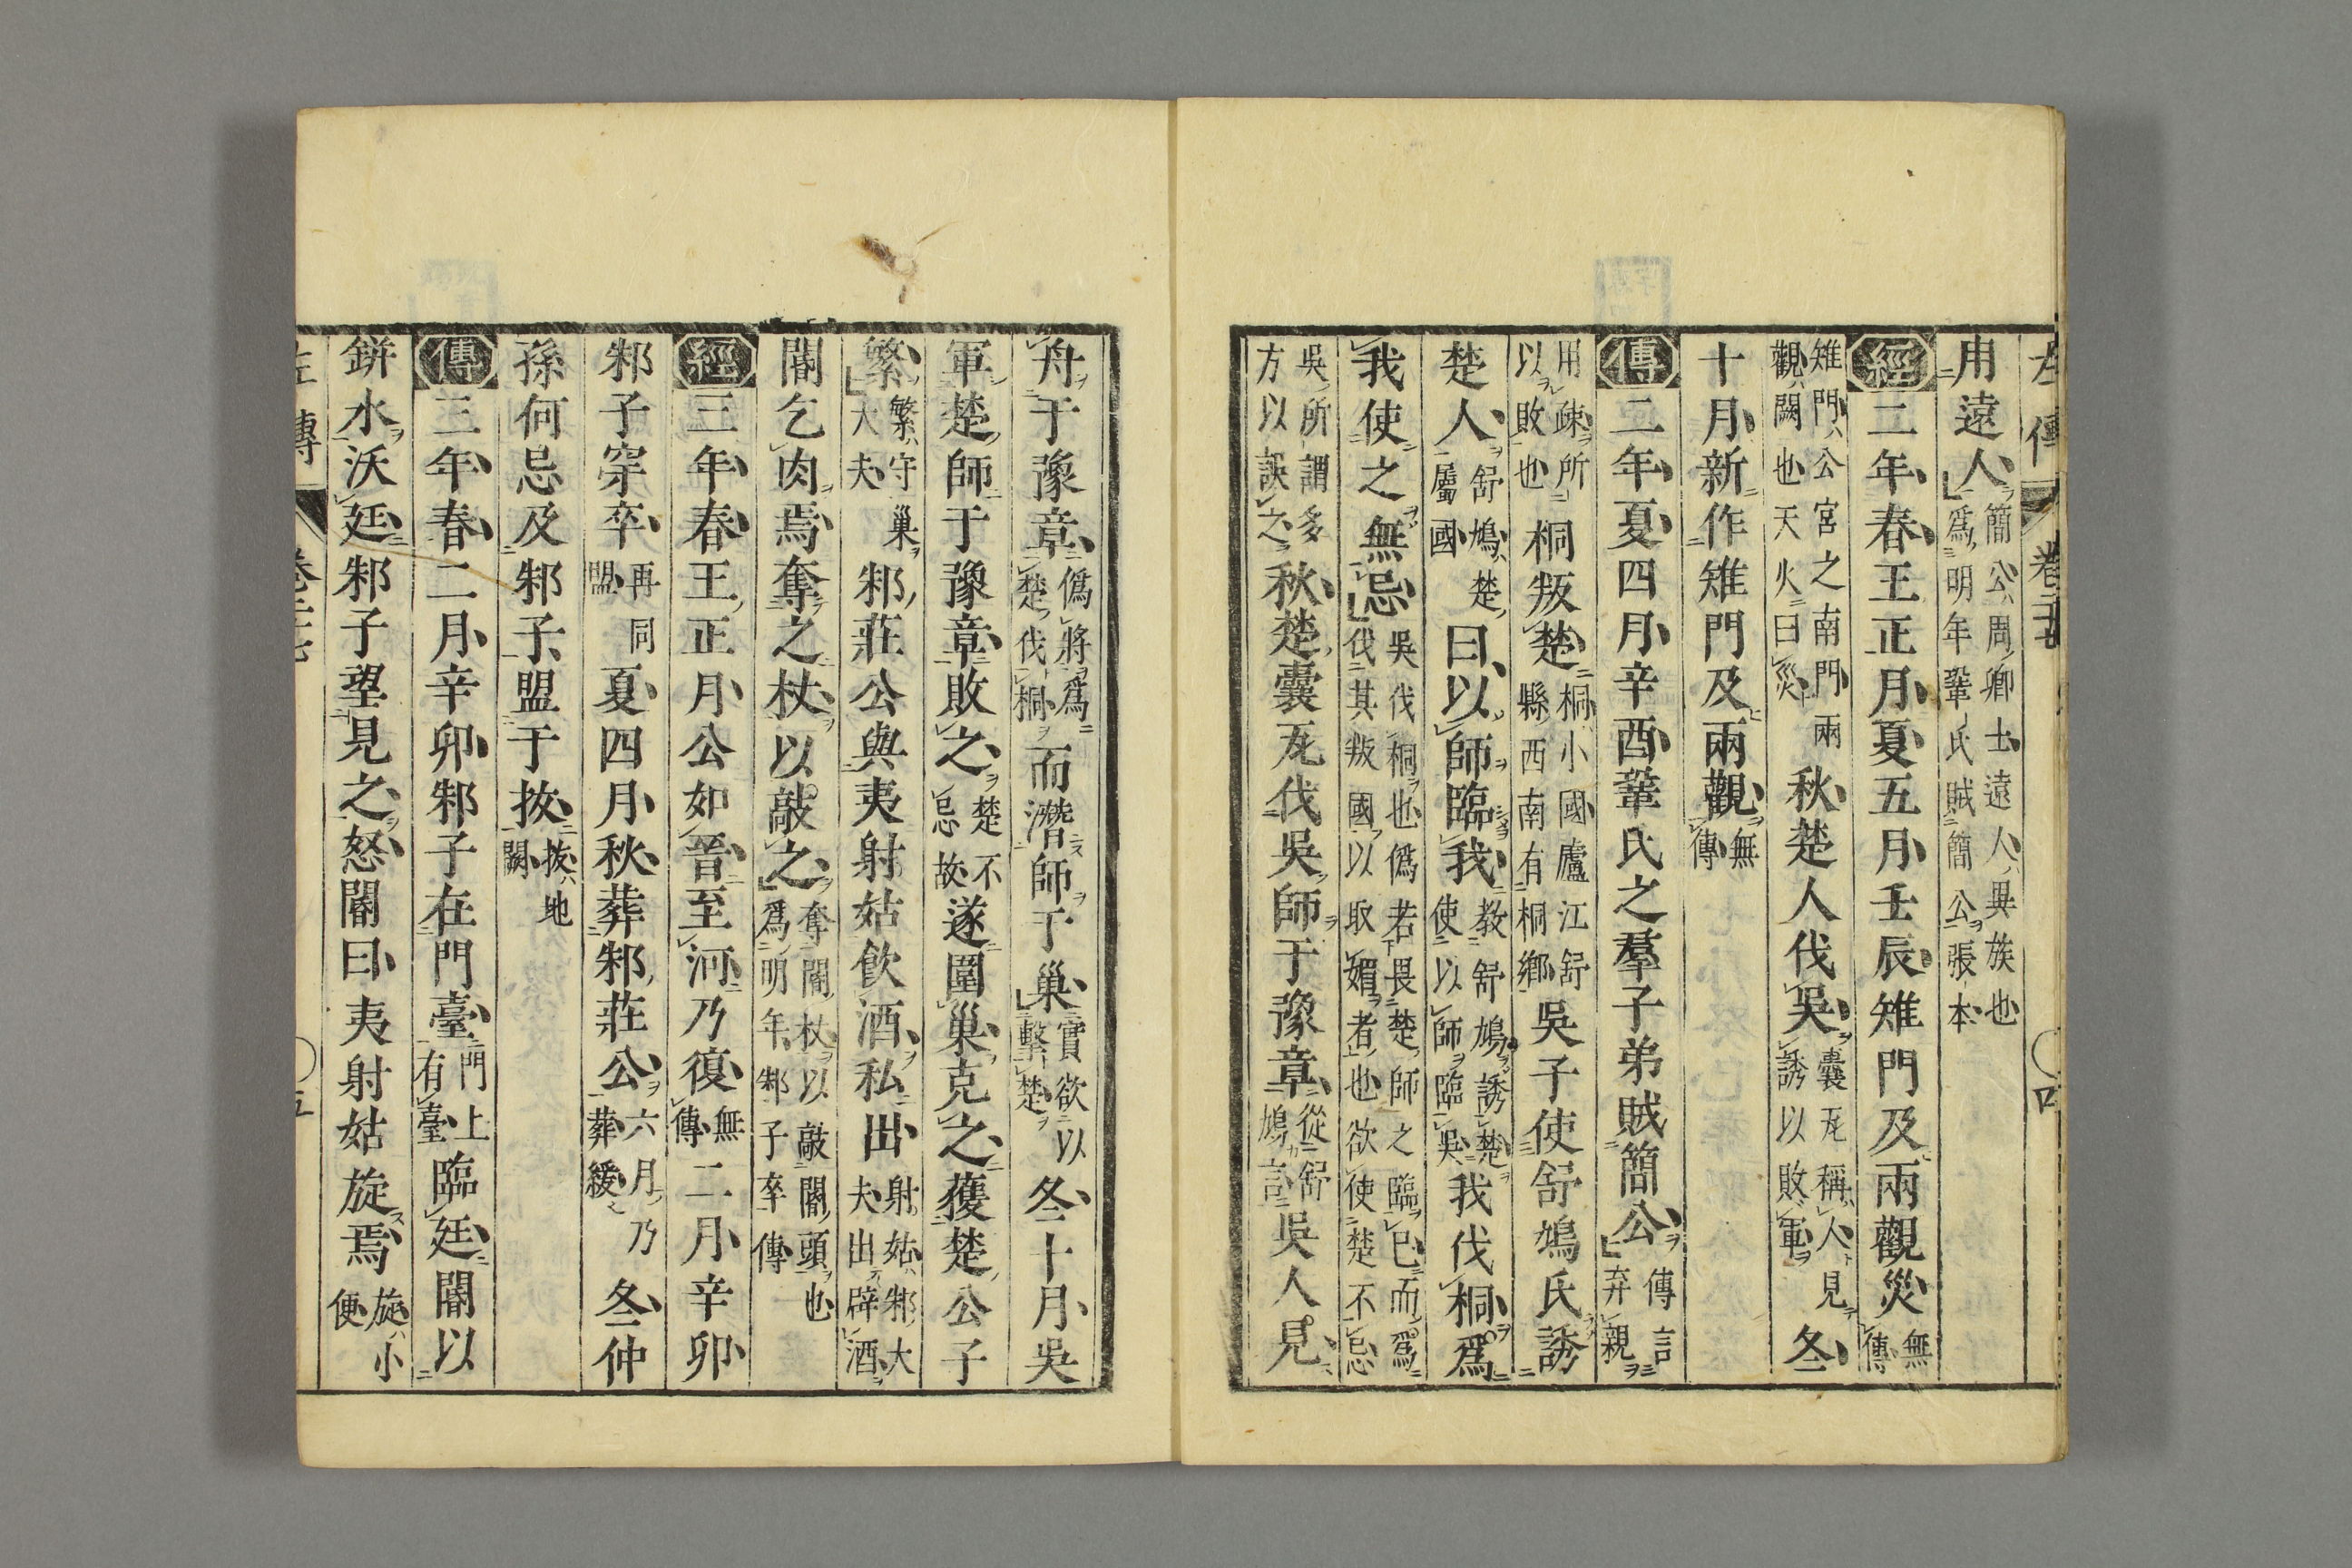 左傳 卷二十七 〇四
用遠人簡公周卿士遠人異族也爲明年鞏氏賊簡公張本
經二年春王正月夏五月壬辰雉門及兩觀災無傳
雉門公宮之南門兩觀闕也天火曰災秋楚人伐吳囊瓦稱人見誘以敗軍冬
十月新作雉門及兩觀無傳
傳二年夏四月辛酉鞏氏之羣子弟賊簡公傳言弃親
用疎所以敗也桐叛楚桐小國廬江舒縣西南有桐鄉吳子使舒鳩氏誘
楚人舒鳩楚屬國曰以師臨我教舒鳩誘楚使以師臨吳我伐桐爲
我使之無忌吳伐桐也僞若畏楚師之臨已而爲伐其叛國以取媚者也欲使楚不忌
吳所謂多方以誤之秋楚囊瓦伐吳師于豫章從舒鳩言吳人見
舟于豫章僞將爲楚伐桐而潛師于巢實欲以擊楚冬十月吳
軍楚師于豫章敗之楚不忌故遂圍巢克之獲楚公子
繁繁守巢大夫邾莊公與夷射姑飲酒私出射姑邾大夫出辟酒
閽乞肉焉奪之杖以敲之奪閽杖以敲閽頭也爲明年邾子卒傳
經三年春王正月公如晉至河乃復無傳二月辛卯
邾子穿卒再同盟夏四月秋葬邾莊公六月乃葬緩冬仲
孫何忌及邾子盟于拔拔地闕
傳三年春二月辛卯邾子在門臺門上有臺臨廷閽以
缾水沃廷邾子望見之怒閽曰夷射姑旋焉旋小便
左傳 卷二十七 〇五